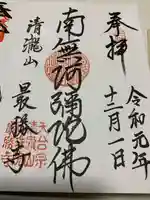 奉拝
令和元年
十二月一日
南無阿彌陀佛
清瀧山
最勝寺
天台宗